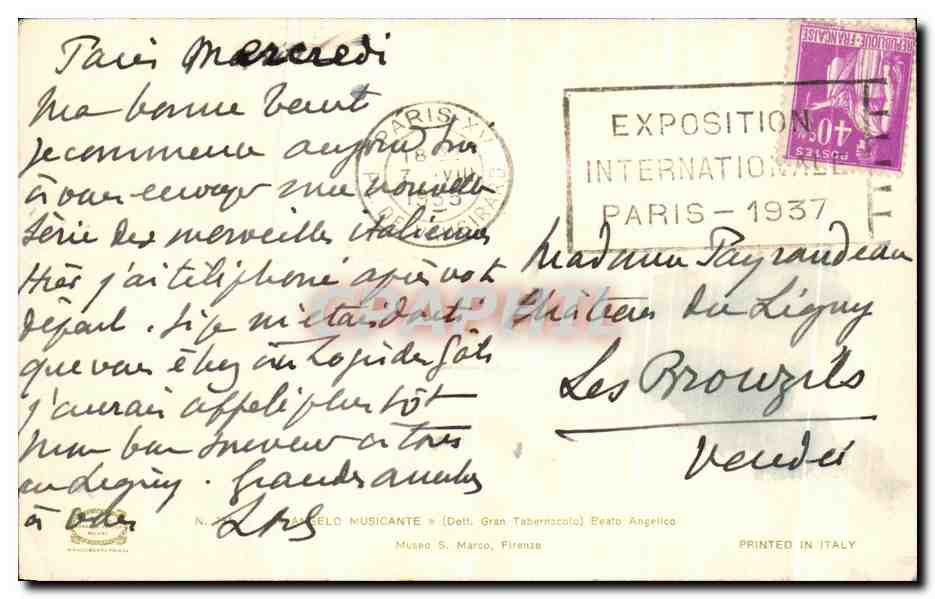 Paris Mercredi
Ma bonne
je commence aujourd'hui
à vous envoyer une nouvelle
Série des merveilles italiennes
Hier j'ai téléphoné après votre
départ. Si je m'étais douté
que vous étiez au Logis des
j'aurais appelé plus tôt
mon bon souvenir à tous
au Légny. Grandes
à vous
PARIS XVI
18
7 VIII
1935
EXPOSITION
INTERNATIONALE
PARIS - 1937
REPUBLIQUE-FRANÇAISE
40c
POSTES
Madame Payraudeau
Château du Légny
Les Brouzils
Vendée
GRAPHIL
N. ANGELO MUSICANTE » (Dett. Gran Tabernacolo) Beato Angelico
Museo S. Marco, Firenze
PRINTED IN ITALY